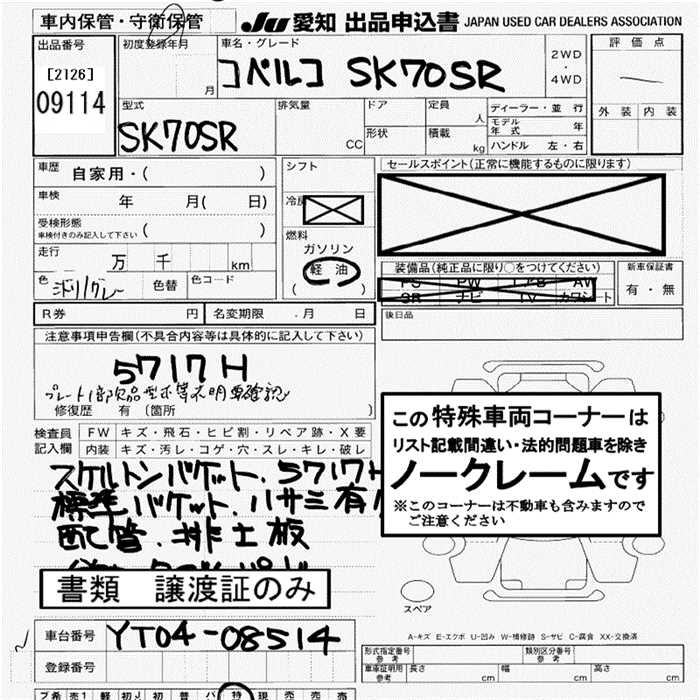 車内保管・守衛保管
JU 愛知 出品申込書 JAPAN USED CAR DEALERS ASSOCIATION
出品番号
[2126]
09114
初度登録年月
月
車名・グレード
コベルコ SK70SR
2WD
・
4WD
評価点
外装 内装
型式
SK70SR
排気量
CC
ドア
形状
定員
人
積載
kg
ディーラー・並行
モデル年式 年
ハンドル 左・右
車歴 自家用・( )
車検 年 月( 日)
受検形態
車検付きのみ記入して下さい ( )
走行 万 千 km
色 色替 色コード
シフト
冷房
燃料
ガソリン
軽油
( )
セールスポイント(正常に機能するものに限ります)
装備品(純正品に限り○をつけてください)
PS PW エアB AW
SR ナビ TV カワシート
新車保証書
有・無
後日品
R券 円 名変期限 . 月 日
注意事項申告欄(不具合内容等は具体的に記入して下さい)
5717H
プレート1部欠品 型式等不明 車確認
修復歴 有 〔箇所 〕
検査員記入欄
FW キズ・飛石・ヒビ割・リペア跡・X要
内装 キズ・汚レ・コゲ・穴・スレ・キレ・破レ
スケルトンバケット. 5717H
標準バケット. ハサミ有
配管. 排土板
書類 譲渡証のみ
この特殊車両コーナーは
リスト記載間違い・法的問題車を除き
ノークレームです
※このコーナーは不動車も含みますので
ご注意ください
スペア
車台番号 YT04-08514
登録番号
A-キズ E-エクボ U-凹み W-補修跡 S-サビ C-腐食 XX-交換済
形式指定番号 参考
類別区分番号 参考
車庫証明用 参考 長さ cm 幅 cm 高さ cm